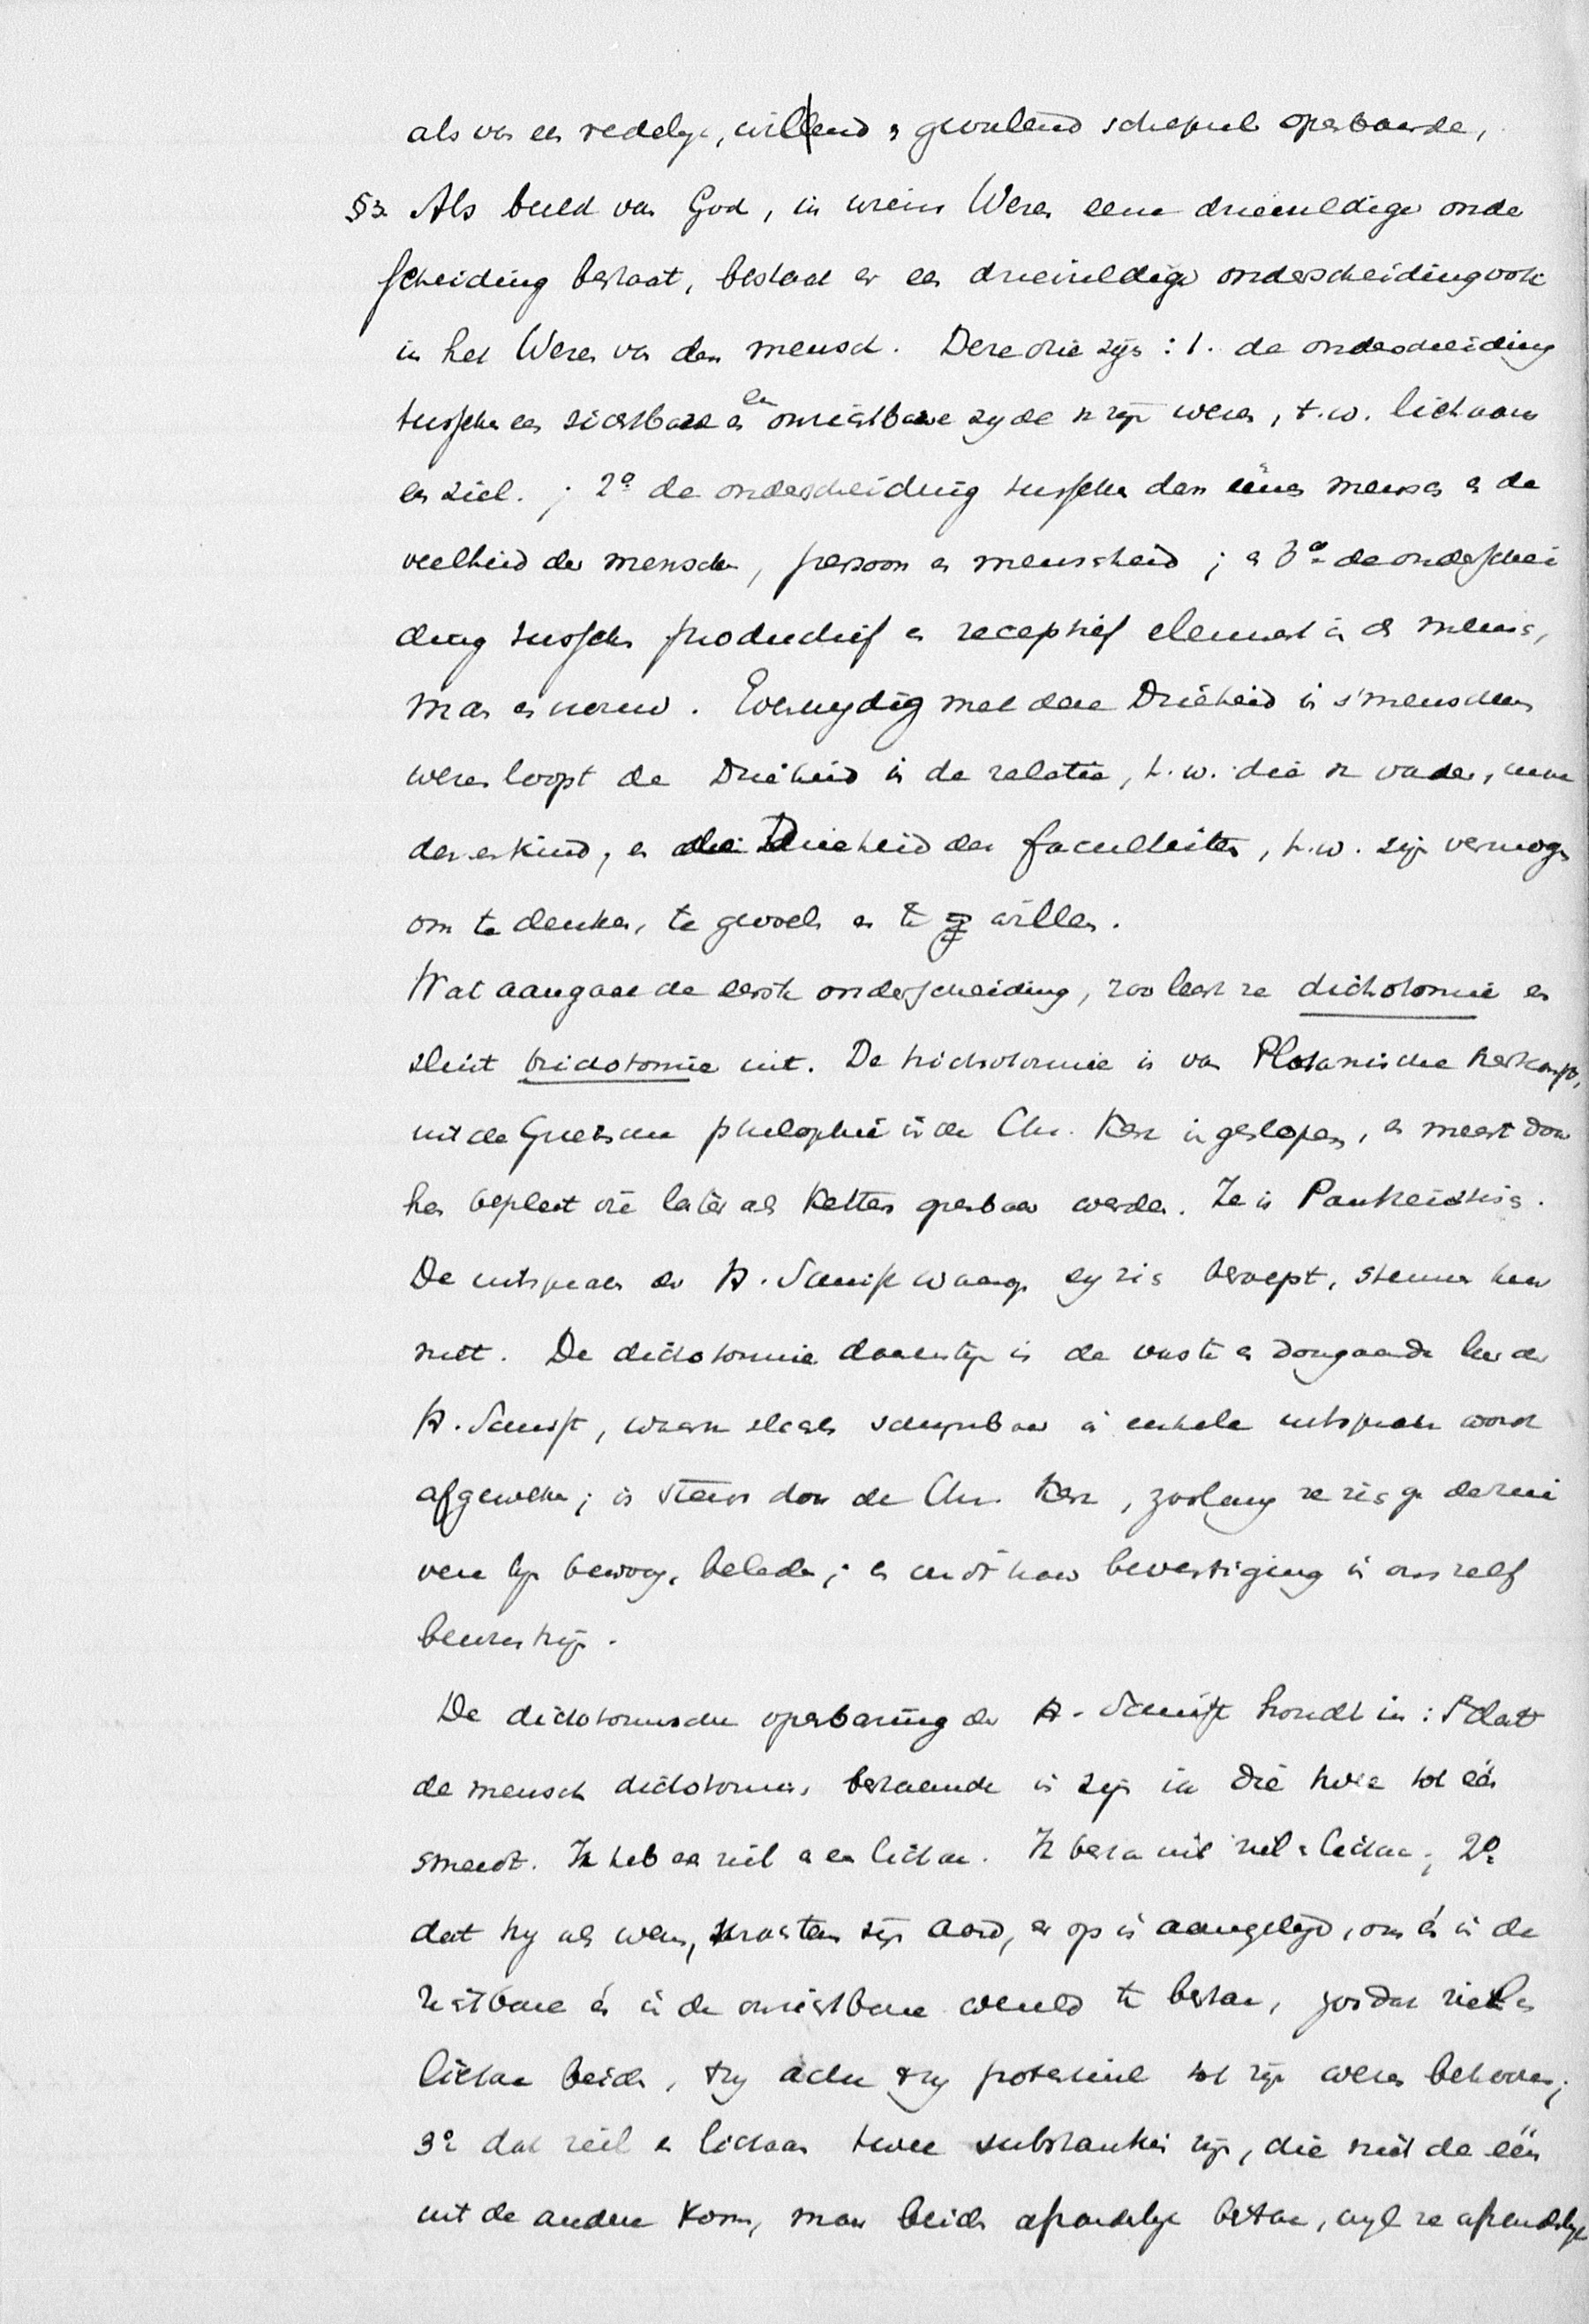 als van een redelyk, willend en gevoelend schepsel openbaarde,
§3. Als beeld van God, in wiens Wezen eene drievuldige onder
scheiding bestaat, bestaat er een drievuldige onderscheiding ook
in het Wezen van den mensch. Deze drie zijn : 1. de onderscheiding
tusschen een zichtbare en een onzichtbare zyde in zijn wezen, t.w. lichaam
en ziel. ; 2º de onderscheiding tusschen den éénen mensch en de
veelheid der menschen, persoon en menscheid ; en 3º de onderschei
ding tusschen productief en receptief element in de mensch,
man en vrouw. Evenwydig met deze Drieheid in s'menschen
wezen loopt de Drieheid in de relatie, t.w. die van vader, moe
der en kind, en die Drieheid der faculteiten, t.w. zijn vermogen
om te denken, te gevoelen en te willen.
Wat aangaat de eerste onderscheiding, zoo leert ze dichotomie en
sluit trichotomie uit. De trichotomie is van Platonische herkomst,
uit de Grieksche philosophie in de Chr. Kerk ingeslopen, en meest door
hen bepleit die later als Ketters openbaar werden. Ze is Pantheistisch.
De uitspraken der H. Schrift waarop zy zich beroept, steunen haar
niet. De dichotomie daarentegen is de vaste en doorgaande leer der
H. Schrift, waarvan slechts schijnbaar in enkele uitspraken wordt
afgeweken; is steeds door de Chr. Kerk, zoolang ze zich op de rechte
lijn bewoog, beleden; en vindt haar bevestiging in ons zelf
bewustzijn.
De dichotomische openbaring der H. Schrift houdt in : 1º dat
de mensch dichotomisch bestaande is zijn ik die twee tot één
smeedt. Ik heb een ziel en een lichaam. Ik besta uit ziel en lichaam; 2º
dat hy als wezen, krachtens zijn aard, er op is aangelegd, om én in de
zichtbare én in de onzichtbare wereld te bestaan, zoodat ziel en
lichaam beide, 't zy actu 't zy potentieel tot zijn wezen behooren;
3º dat ziel en lichaam twee substantien zijn, die niet de één
uit de andere komen, maar beide afzonderlijk bestaan, wyl ze afzonderlijk